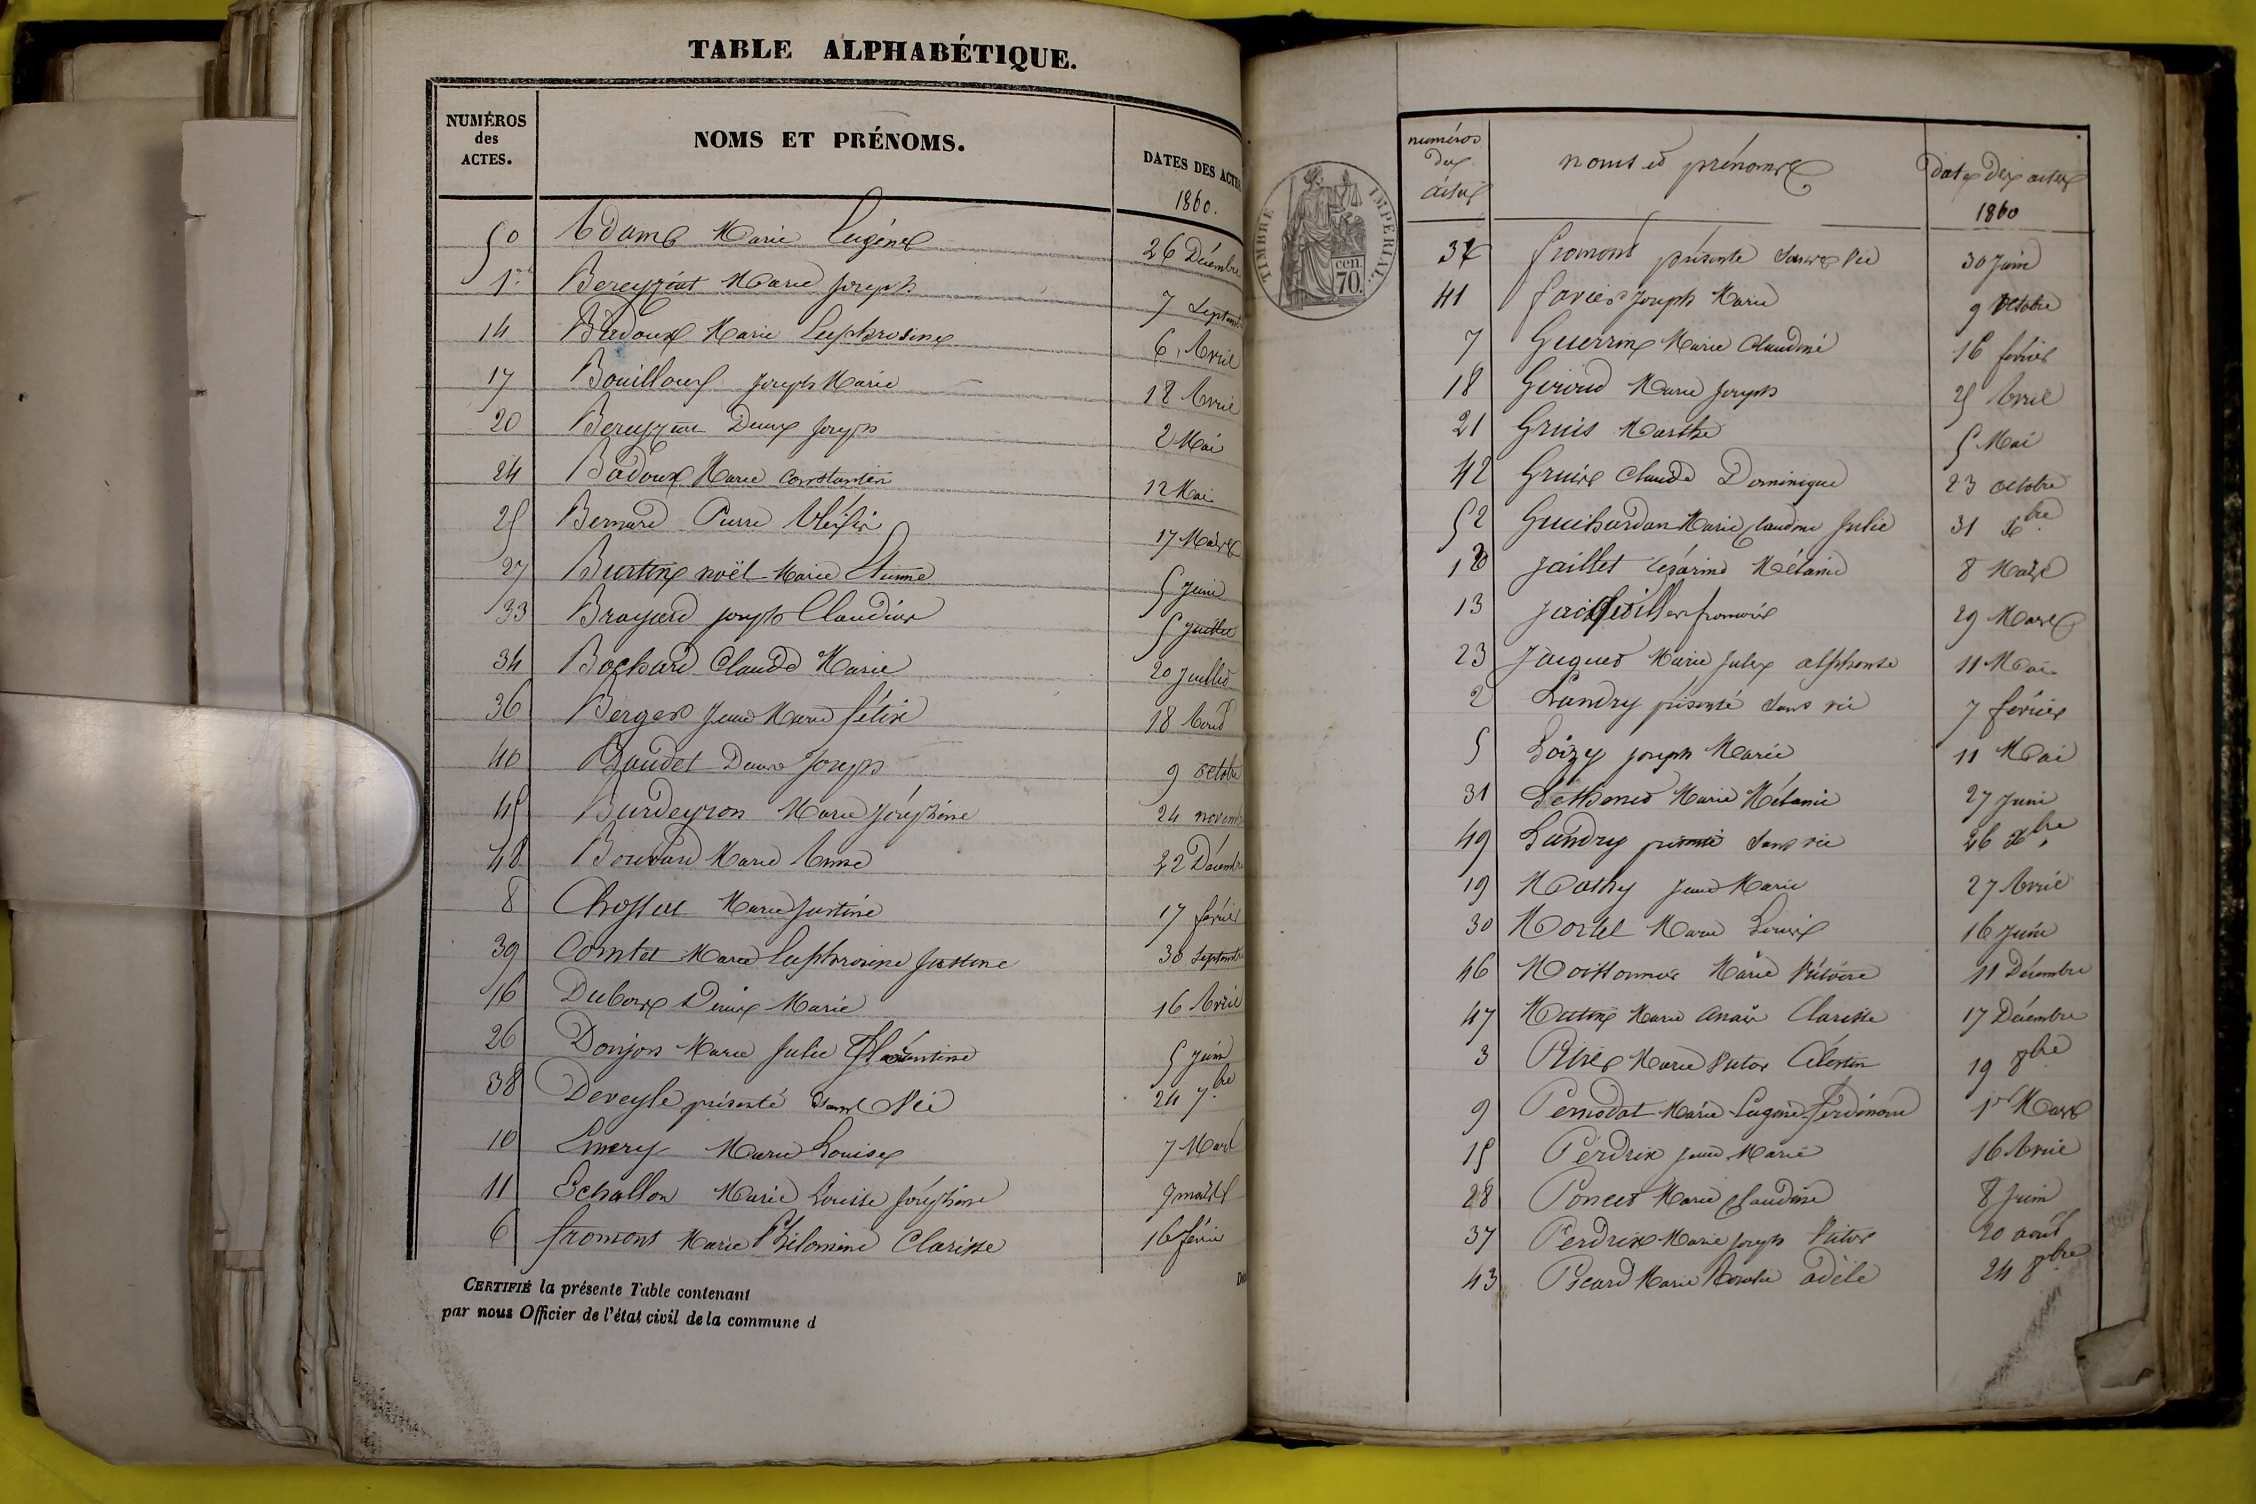 TABLE ALPHABÉTIQUE.
NUMÉROS des ACTES.
NOMS ET PRÉNOMS.
DATES DES ACTES
1860.
50 Adam Marie Eugène 26 Décembre
1er Bereyziat Marie Joseph 7
14 Badoux Marie Euphrosine 6 Avril
17 Bouilloux Joseph Marie 18 Avril
20 Bereyziat Joseph 2 Mai
24 Badoux Marie Constantin 12 Mai
25 Bernard Pierre 17 Mars
27 Burtin noël Marie Etienne 5 Juin
33 Brayard Joseph Claudius 5 Juillet
34 Bochard Claude Marie 20 Juillet
36 Berger Jean Marie félix 18 Aout
40 Baudet Joseph 9 octobre
45 Burdeyron Marie Joséphine 24 novembre
48 Bouvard Marie Anne 22 Décembre
8 Marie Justine 17 févrie
39 Comtet Marie Euphrosine Justine 30 Septembre
16 Duboux Denix Marie 16 Avril
26 Donjon Marie Julie Florentine 5 Juin
38 Deveyle présenté sans Vie 24 7bre
10 Emery Marie Louise 7 Mars
11 Echallon Marie Louise Joséphine 9 mars
6 fromont Marie Philomine Clarisse 16 févrie
CERTIFIÉ la présente Table contenant
par nous Officier de l'état civil de la commune d
TIMBRE IMPÉRIAL.
70. cen
numéros des actes
noms et prénoms
Dates des actes
1860
32 fromont présenté sans Vie 30 Juin
41 Joseph Marie 9 Octobre
7 Guerrin Marie Claudine 16 févrie
18 Giroud Marie Joseph 25 Avril
21 Gruis Marthe 5 Mai
42 Gruis Claude Dominique 23 octobre
52 Guichardan Marie Claudine Julie 31 Xbre
12 Jaillet Césarine Mélanie 8 Mars
13 29 Mars
23 Jacquet Marie Jules alphonse 11 Mai
2 Landry présenté sans vie 7 févrie
5 Loizy Joseph Marie 11 Mai
31 Marie Mélanie 27 Juin
49 Landry présenté sans vie 26 Xbre
19 Mathy Jean Marie 27 Avril
30 Mortel Marie Louise 16 Juin
46 Moissonnier Marie Victoire 11 Décembre
47 Mutin Marie Anaïs Clarisse 17 Décembre
3 Marie Victor Célestin 19 8bre
9 Pernodat Marie Eugène ferdinand 1er Mars
15 Perdrix Jean Marie 16 Avril
28 Poncet Marie Claudine 8 Juin
37 Perdrix Marie Joseph Victor 20 août
43 Picard Marie Adèle 24 8bre